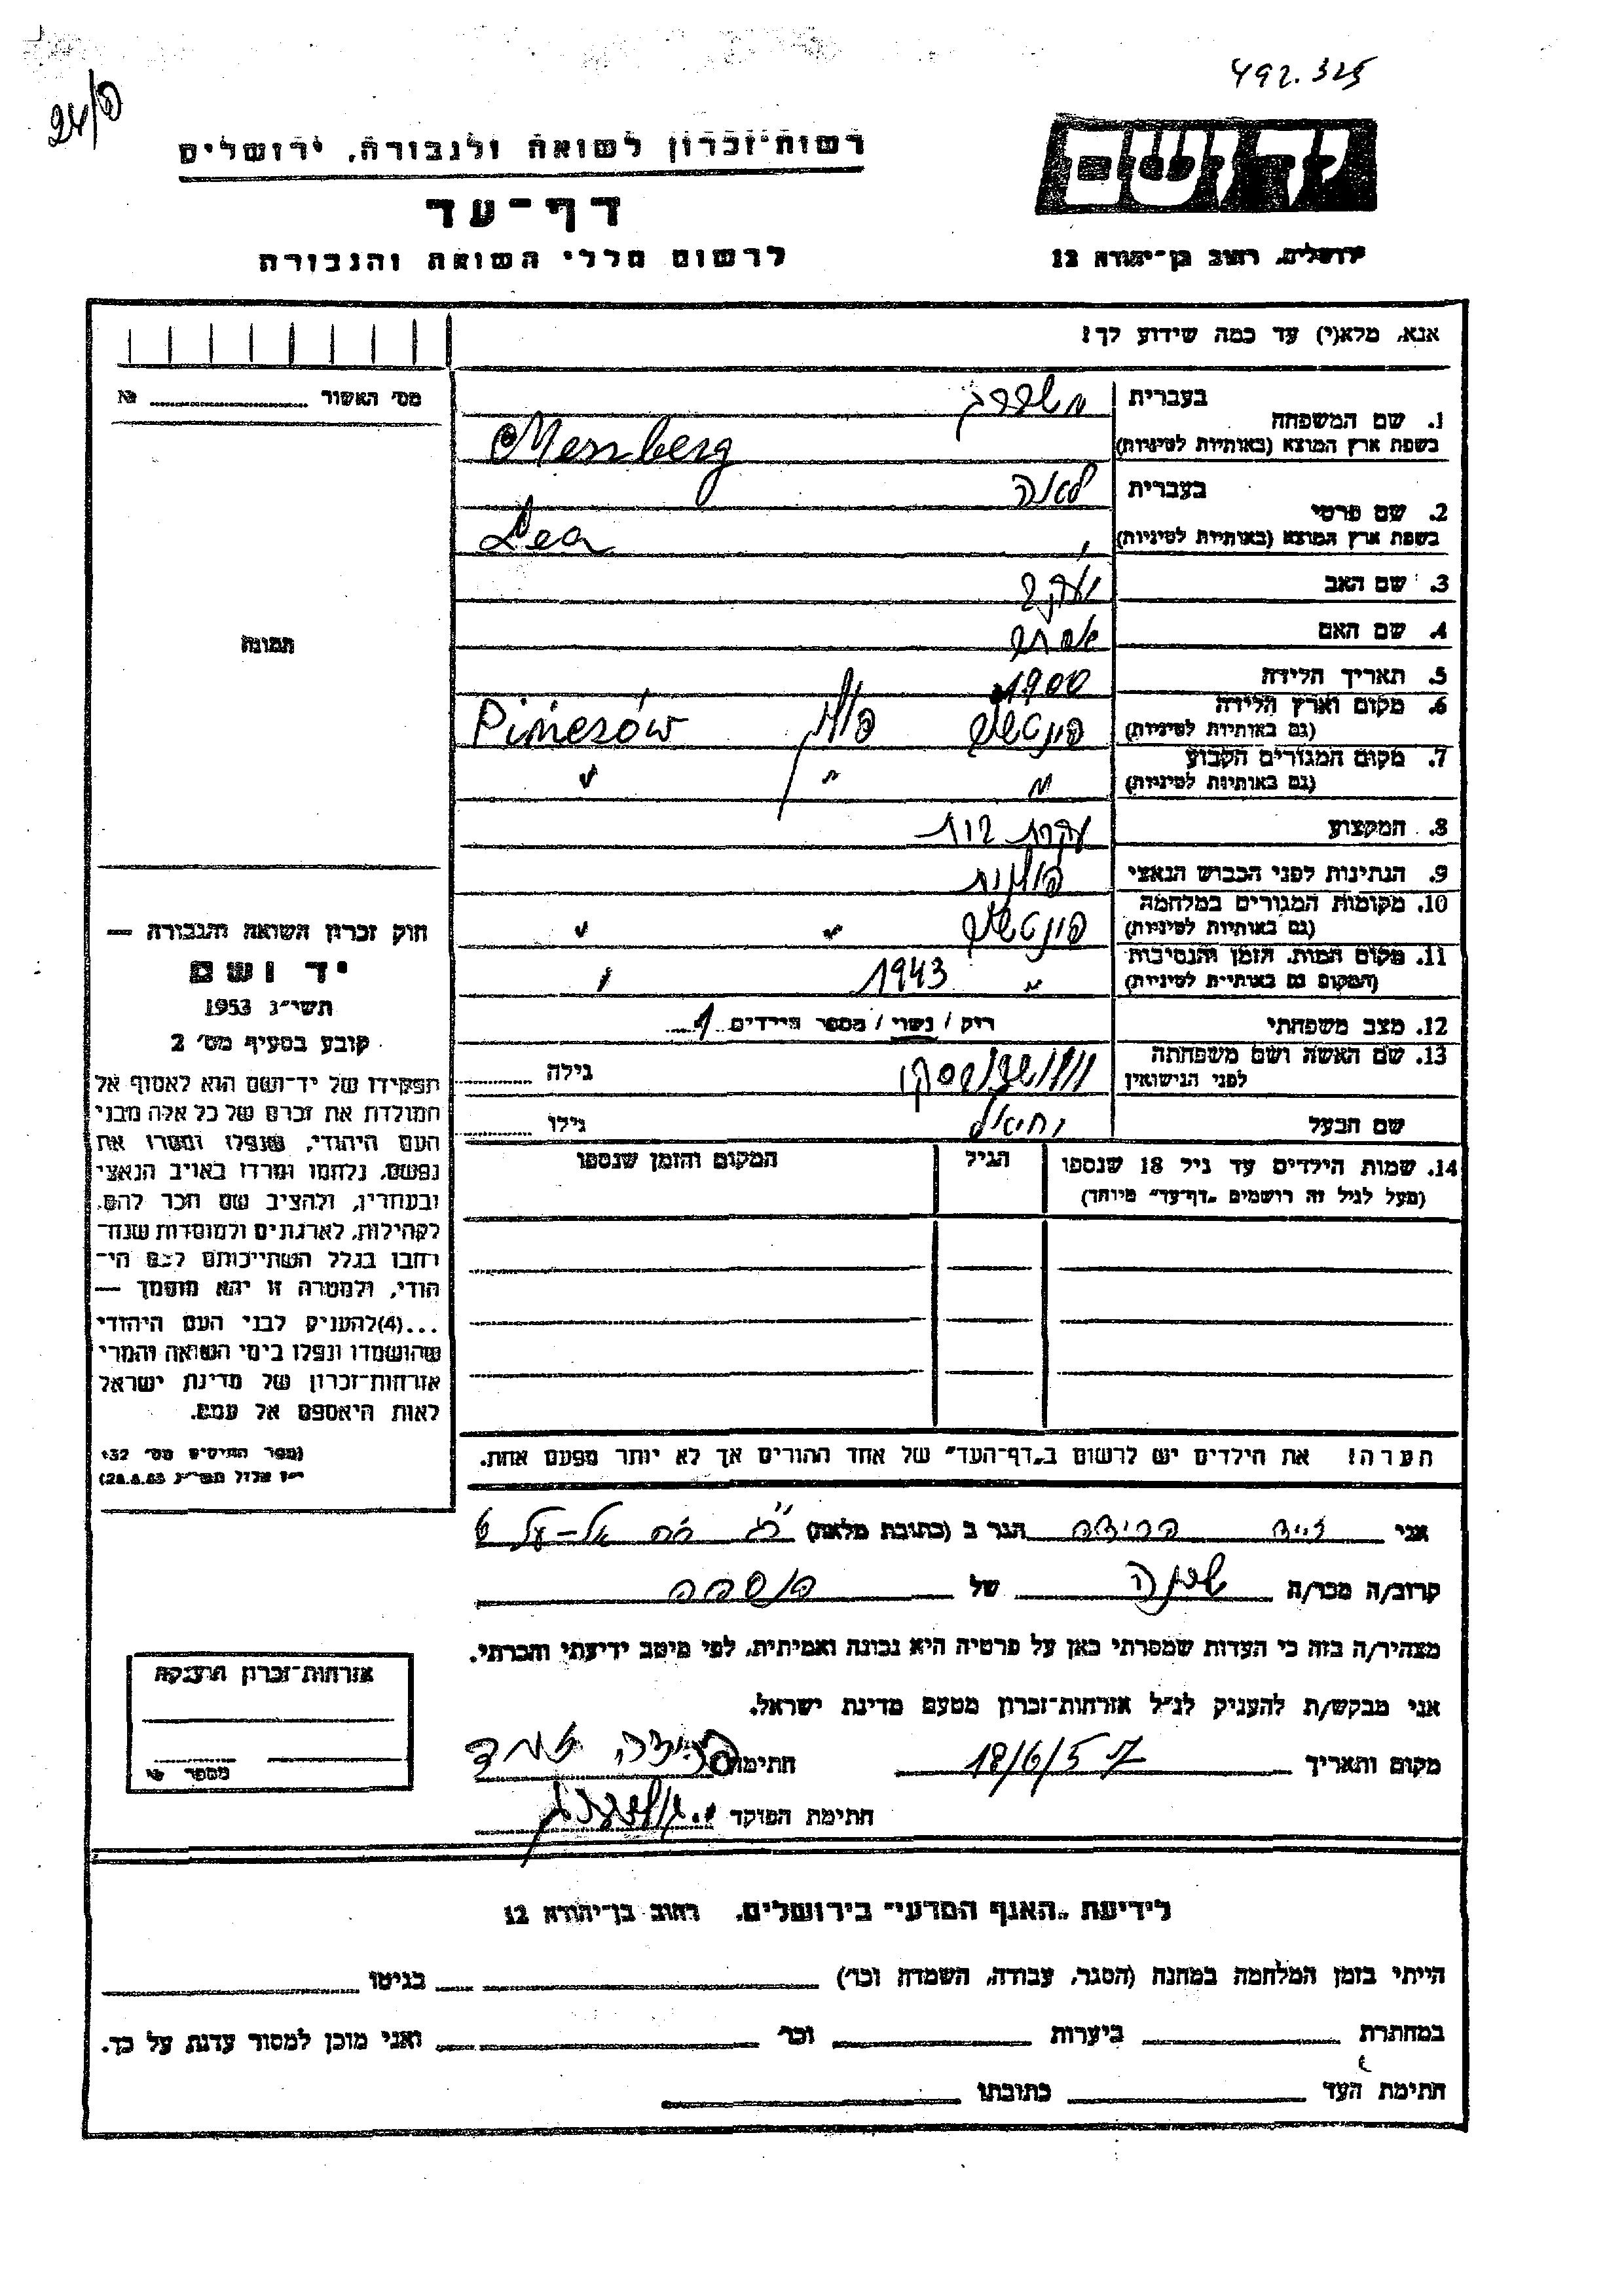 492.325
24/פ
רשות־זכרון לשואה ולגבורה, ירושלים
דף־עד
לרשום חללי השואה והגבורה
יד ושם
ירושלים, רחוב בן־יהודה 12
אנא, מלא(י) עד כמה שידוע לך!
מס' האשור № 
1. שם המשפחה
בעברית
בשפת ארץ המוצא (באותיות לטיניות)
Mernberg
2. שם פרטי
בעברית לאה
בשפת ארץ המוצא (באותיות לטיניות) Lea
3. שם האב יעקב
4. שם האם
5. תאריך הלידה 1900
6. מקום וארץ הלידה
(גם באותיות לטיניות) פולין
7. מקום המגורים הקבוע
(גם באותיות לטיניות) " " "
8. המקצוע עקרת בית
9. הנתינות לפני הכבוש הנאצי פולנית
10. מקומות המגורים במלחמה
(גם באותיות לטיניות) " "
11. מקום המות, הזמן והנסיבות
(המקום גם באותיות לטיניות) " 1943
12. מצב משפחתי רוק / נשוי / מספר הילדים 1
13. שם האשה ושם משפחתה
לפני הנישואין
גילה
שם הבעל
גילו
14. שמות הילדים עד גיל 18 שנספו
(מעל לגיל זה רושמים "דף־עד" מיוחד)
הגיל
המקום והזמן שנספו
הערה! את הילדים יש לרשום ב"דף־העד" של אחד ההורים אך לא יותר מפעם אחת.
תמונה
חוק זכרון השואה והגבורה —
יד ושם
תשי"ג 1953
קובע בסעיף מס' 2
תפקידו של יד־ושם הוא לאסוף אל
המולדת את זכרם של כל אלה מבני
העם היהודי, שנפלו ומסרו את
נפשם, נלחמו ומרדו באויב הנאצי
ובעוזריו, ולהציב שם וזכר להם,
לקהילות, לארגונים ולמוסדות שנח־
רבו בגלל השתייכותם לעם הי־
הודי, ולמטרה זו יהא מוסמך —
...(4) להעניק לבני העם היהודי
שהושמדו ונפלו בימי השואה והמרי
אזרחות־זכרון של מדינת ישראל
לאות היאספם אל עמם.
(ספר החוקים מס' 132
י"ז אלול תשי"ג 28.8.53)
אני הגר ב (כתובת מלאה)
קרוב/ה מכר/ה שכנה של
מצהיר/ה בזה כי העדות שמסרתי כאן על פרטיה היא נכונה ואמיתית, לפי מיטב ידיעתי והכרתי.
אני מבקש/ת להעניק לנ"ל אזרחות־זכרון מטעם מדינת ישראל.
מקום ותאריך 18/6/57 חתימה
חתימת הפוקד
אזרחות־זכרון הוענקה
מספר
לידיעת "האגף המדעי" בירושלים, רחוב בן־יהודה 12
הייתי בזמן המלחמה במחנה (הסגר, עבודה, השמדה וכו') בגיטו
במחתרת ביערות וכו' ואני מוכן למסור עדות על כך.
חתימת העד כתובתו